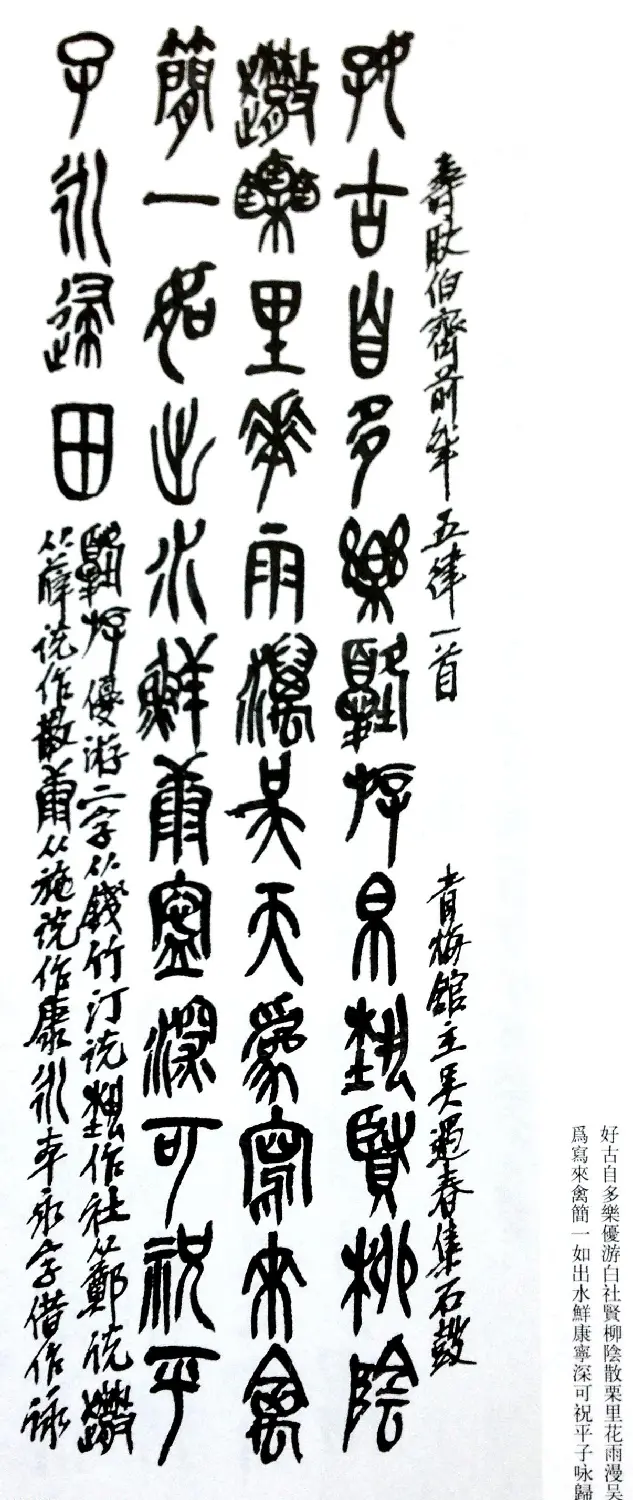 好古自多樂優游白社賢柳陰散栗里花雨漫吴
爲寫來禽簡一如出水鮮康寧深可祝平子咏歸
壽 伯齊前年五律一首 青梅館主吴遇春集石鼓
好古自多樂優游白社賢柳陰
散栗里花雨漫吴天爲寫來禽
簡一如出水鮮康寧深可祝平
子永歸田
優游二字从錢竹汀説 作社从鄭説
从薛説作散 从施説作康永本永字借作詠